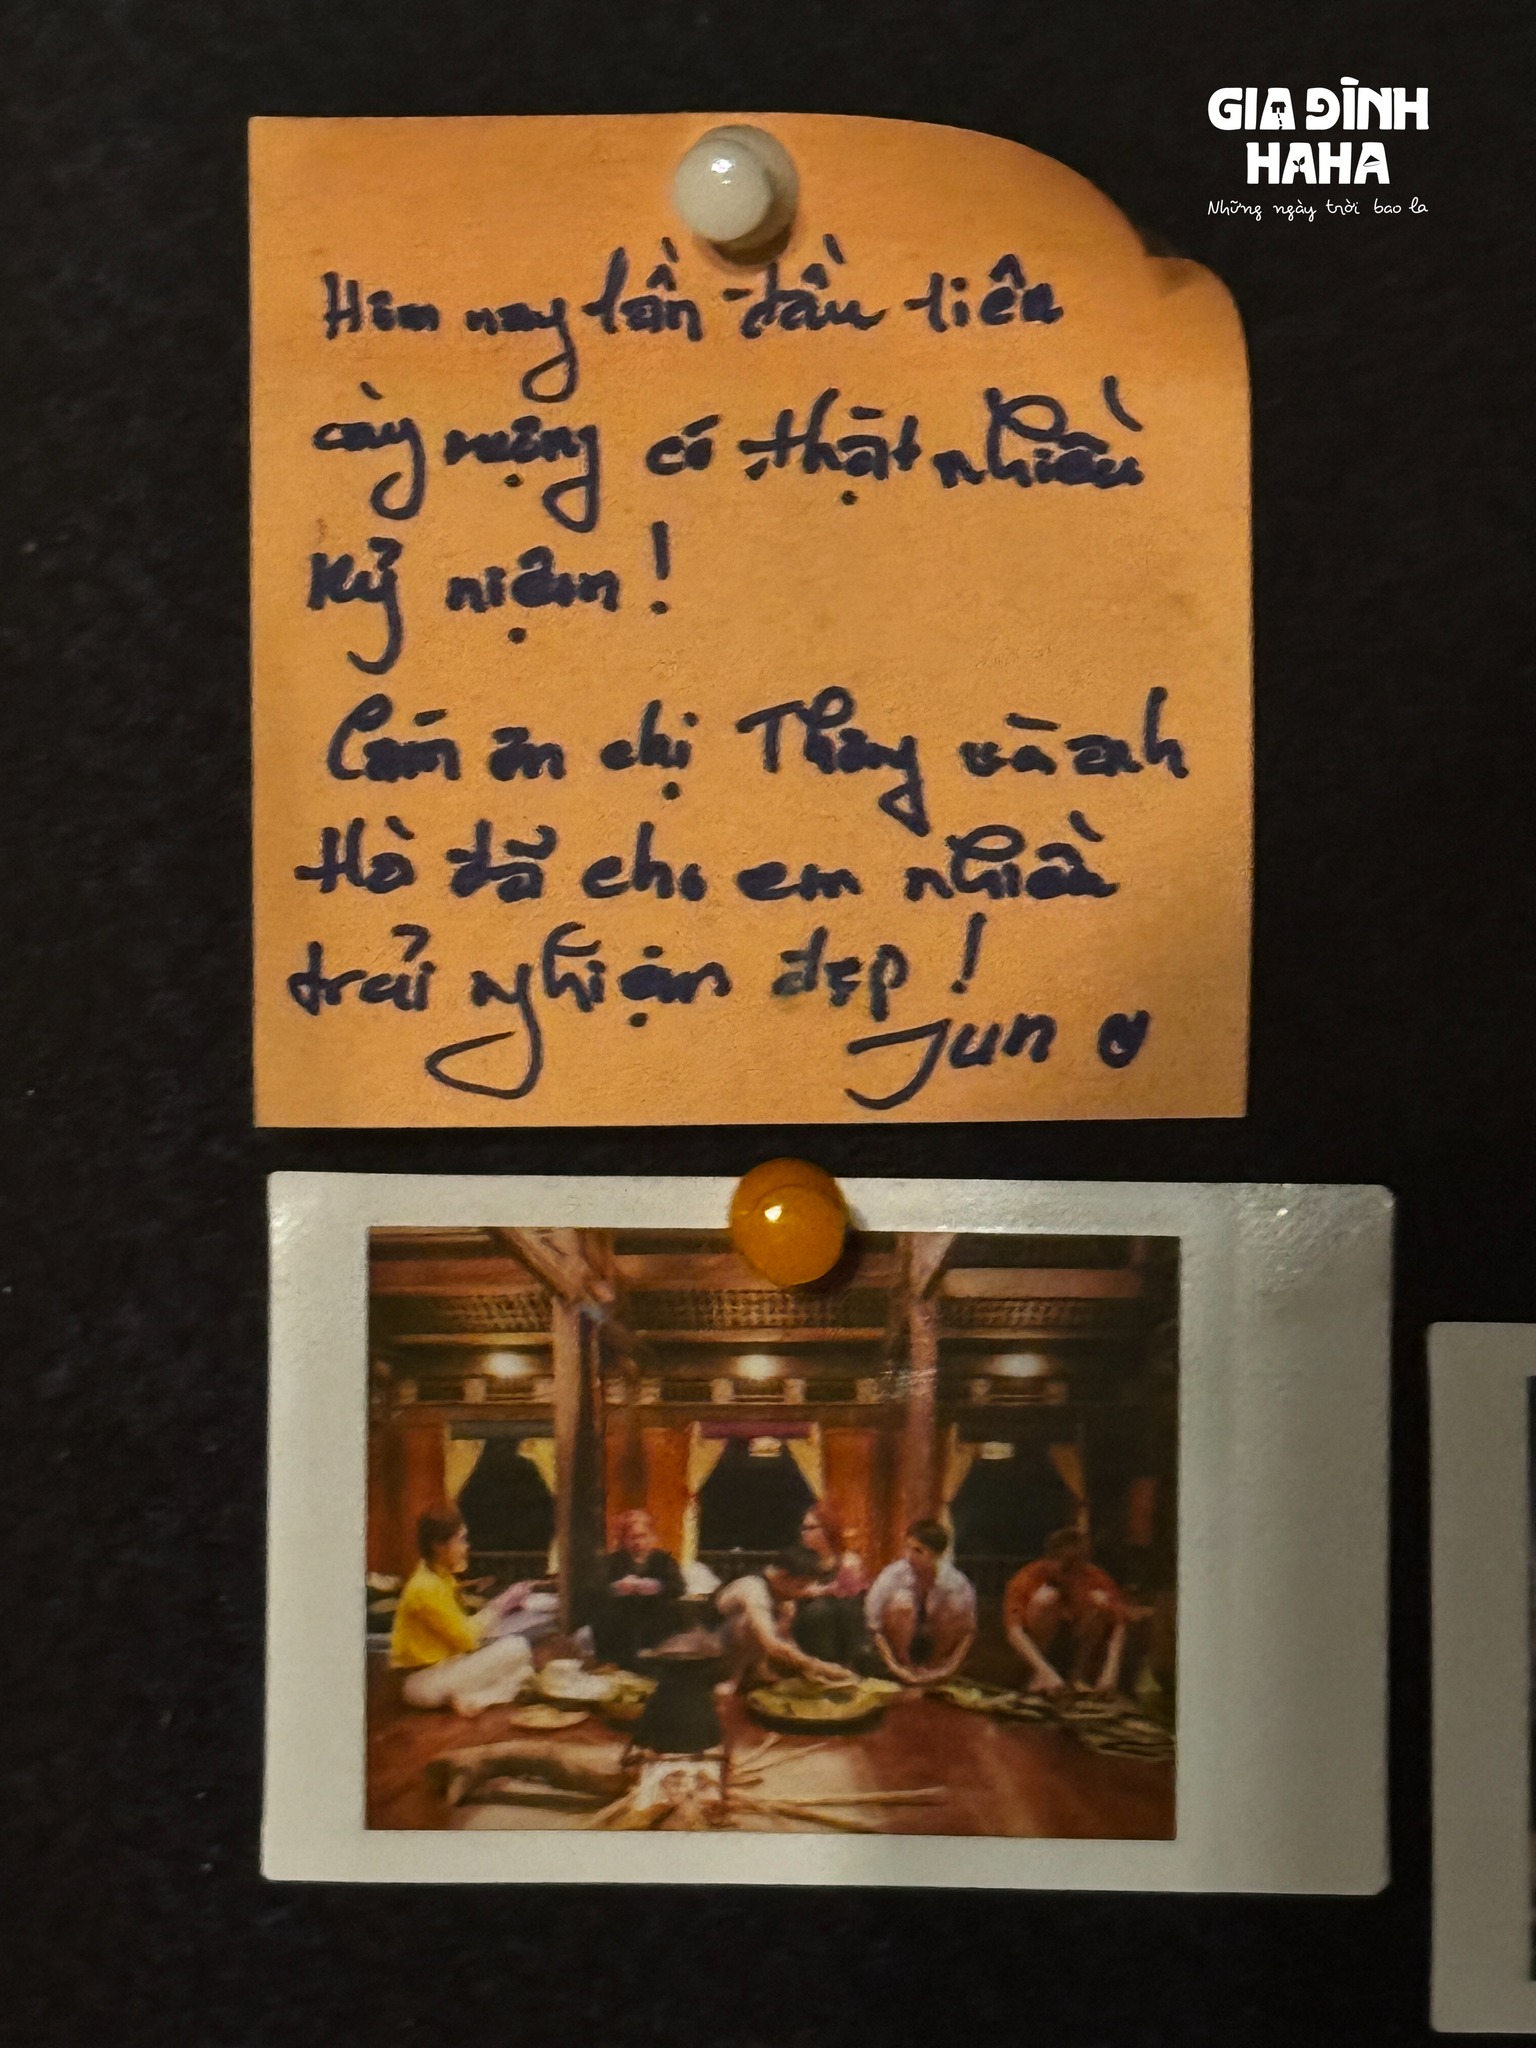 GIA ĐÌNH
HAHA
Những ngày trời bao la
Hôm nay lần đầu tiên
cày ruộng có thật nhiều
kỷ niệm!
Cám ơn chị Thây và anh
Hò đã cho em nhiều
trải nghiệm đẹp!
Jun